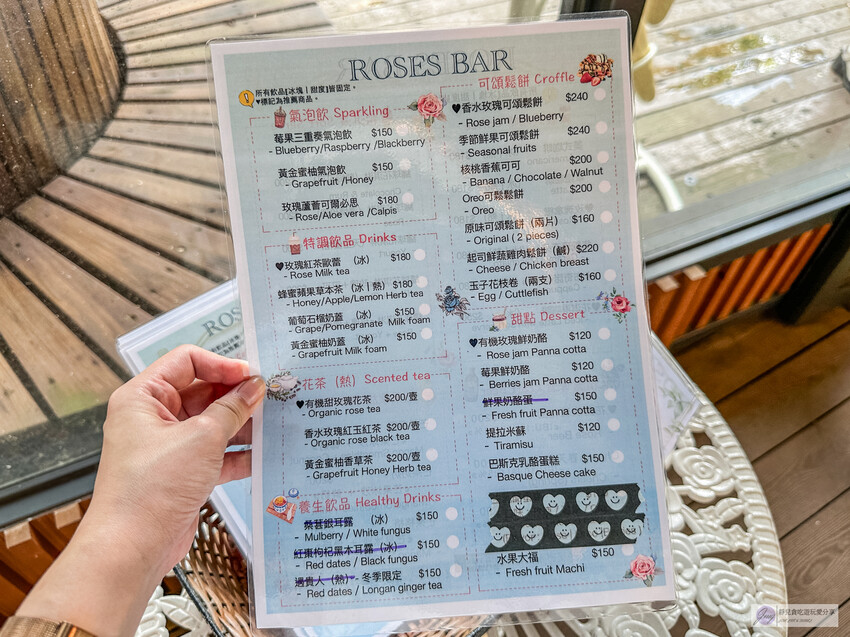 ROSES BAR
所有飲品【冰塊｜甜度】皆固定。
♥標記為推薦商品。
氣泡飲 Sparkling
莓果三重奏氣泡飲 $150
- Blueberry/Raspberry /Blackberry
黃金蜜柚氣泡飲 $150
- Grapefruit /Honey
玫瑰蘆薈可爾必思 $180
- Rose/Aloe vera /Calpis
特調飲品 Drinks
♥玫瑰紅茶歐蕾 （冰） $180
- Rose Milk tea
蜂蜜蘋果草本茶 （冰｜熱） $180
- Honey/Apple/Lemon Herb tea
葡萄石榴奶蓋 （冰） $150
- Grape/Pomegranate Milk foam
黃金蜜柚奶蓋 （冰） $150
- Grapefruit Milk foam
花茶（熱）Scented tea
♥有機甜玫瑰花茶 $200/壺
- Organic rose tea
香水玫瑰紅玉紅茶 $200/壺
- Organic rose black tea
黃金蜜柚香草茶 $200/壺
- Grapefruit Honey Herb tea
養生飲品 Healthy Drinks
桑葚銀耳露 （冰） $150
- Mulberry / White fungus
紅棗枸杞黑木耳露（冰） $150
- Red dates / Black fungus
遇貴人（熱）- 冬季限定 $150
- Red dates / Longan ginger tea
可頌鬆餅 Croffle
♥香水玫瑰可頌鬆餅 $240
- Rose jam / Blueberry
季節鮮果可頌鬆餅 $240
- Seasonal fruits
核桃香蕉可可 $200
- Banana / Chocolate / Walnut
Oreo可鬆鬆餅 $200
- Oreo
原味可頌鬆餅（兩片） $160
- Original ( 2 pieces)
起司鮮蔬雞肉鬆餅（鹹） $220
- Cheese / Chicken breast
玉子花枝卷（兩支） $160
- Egg / Cuttlefish
甜點 Dessert
♥有機玫瑰鮮奶酪 $120
- Rose jam Panna cotta
莓果鮮奶酪 $120
- Berries jam Panna cotta
鮮果奶酪蛋 $150
- Fresh fruit Panna cotta
提拉米蘇 $120
- Tiramisu
巴斯克乳酪蛋糕 $150
- Basque Cheese cake
水果大福 $150
- Fresh fruit Machi
舒兒貪吃遊玩愛分享